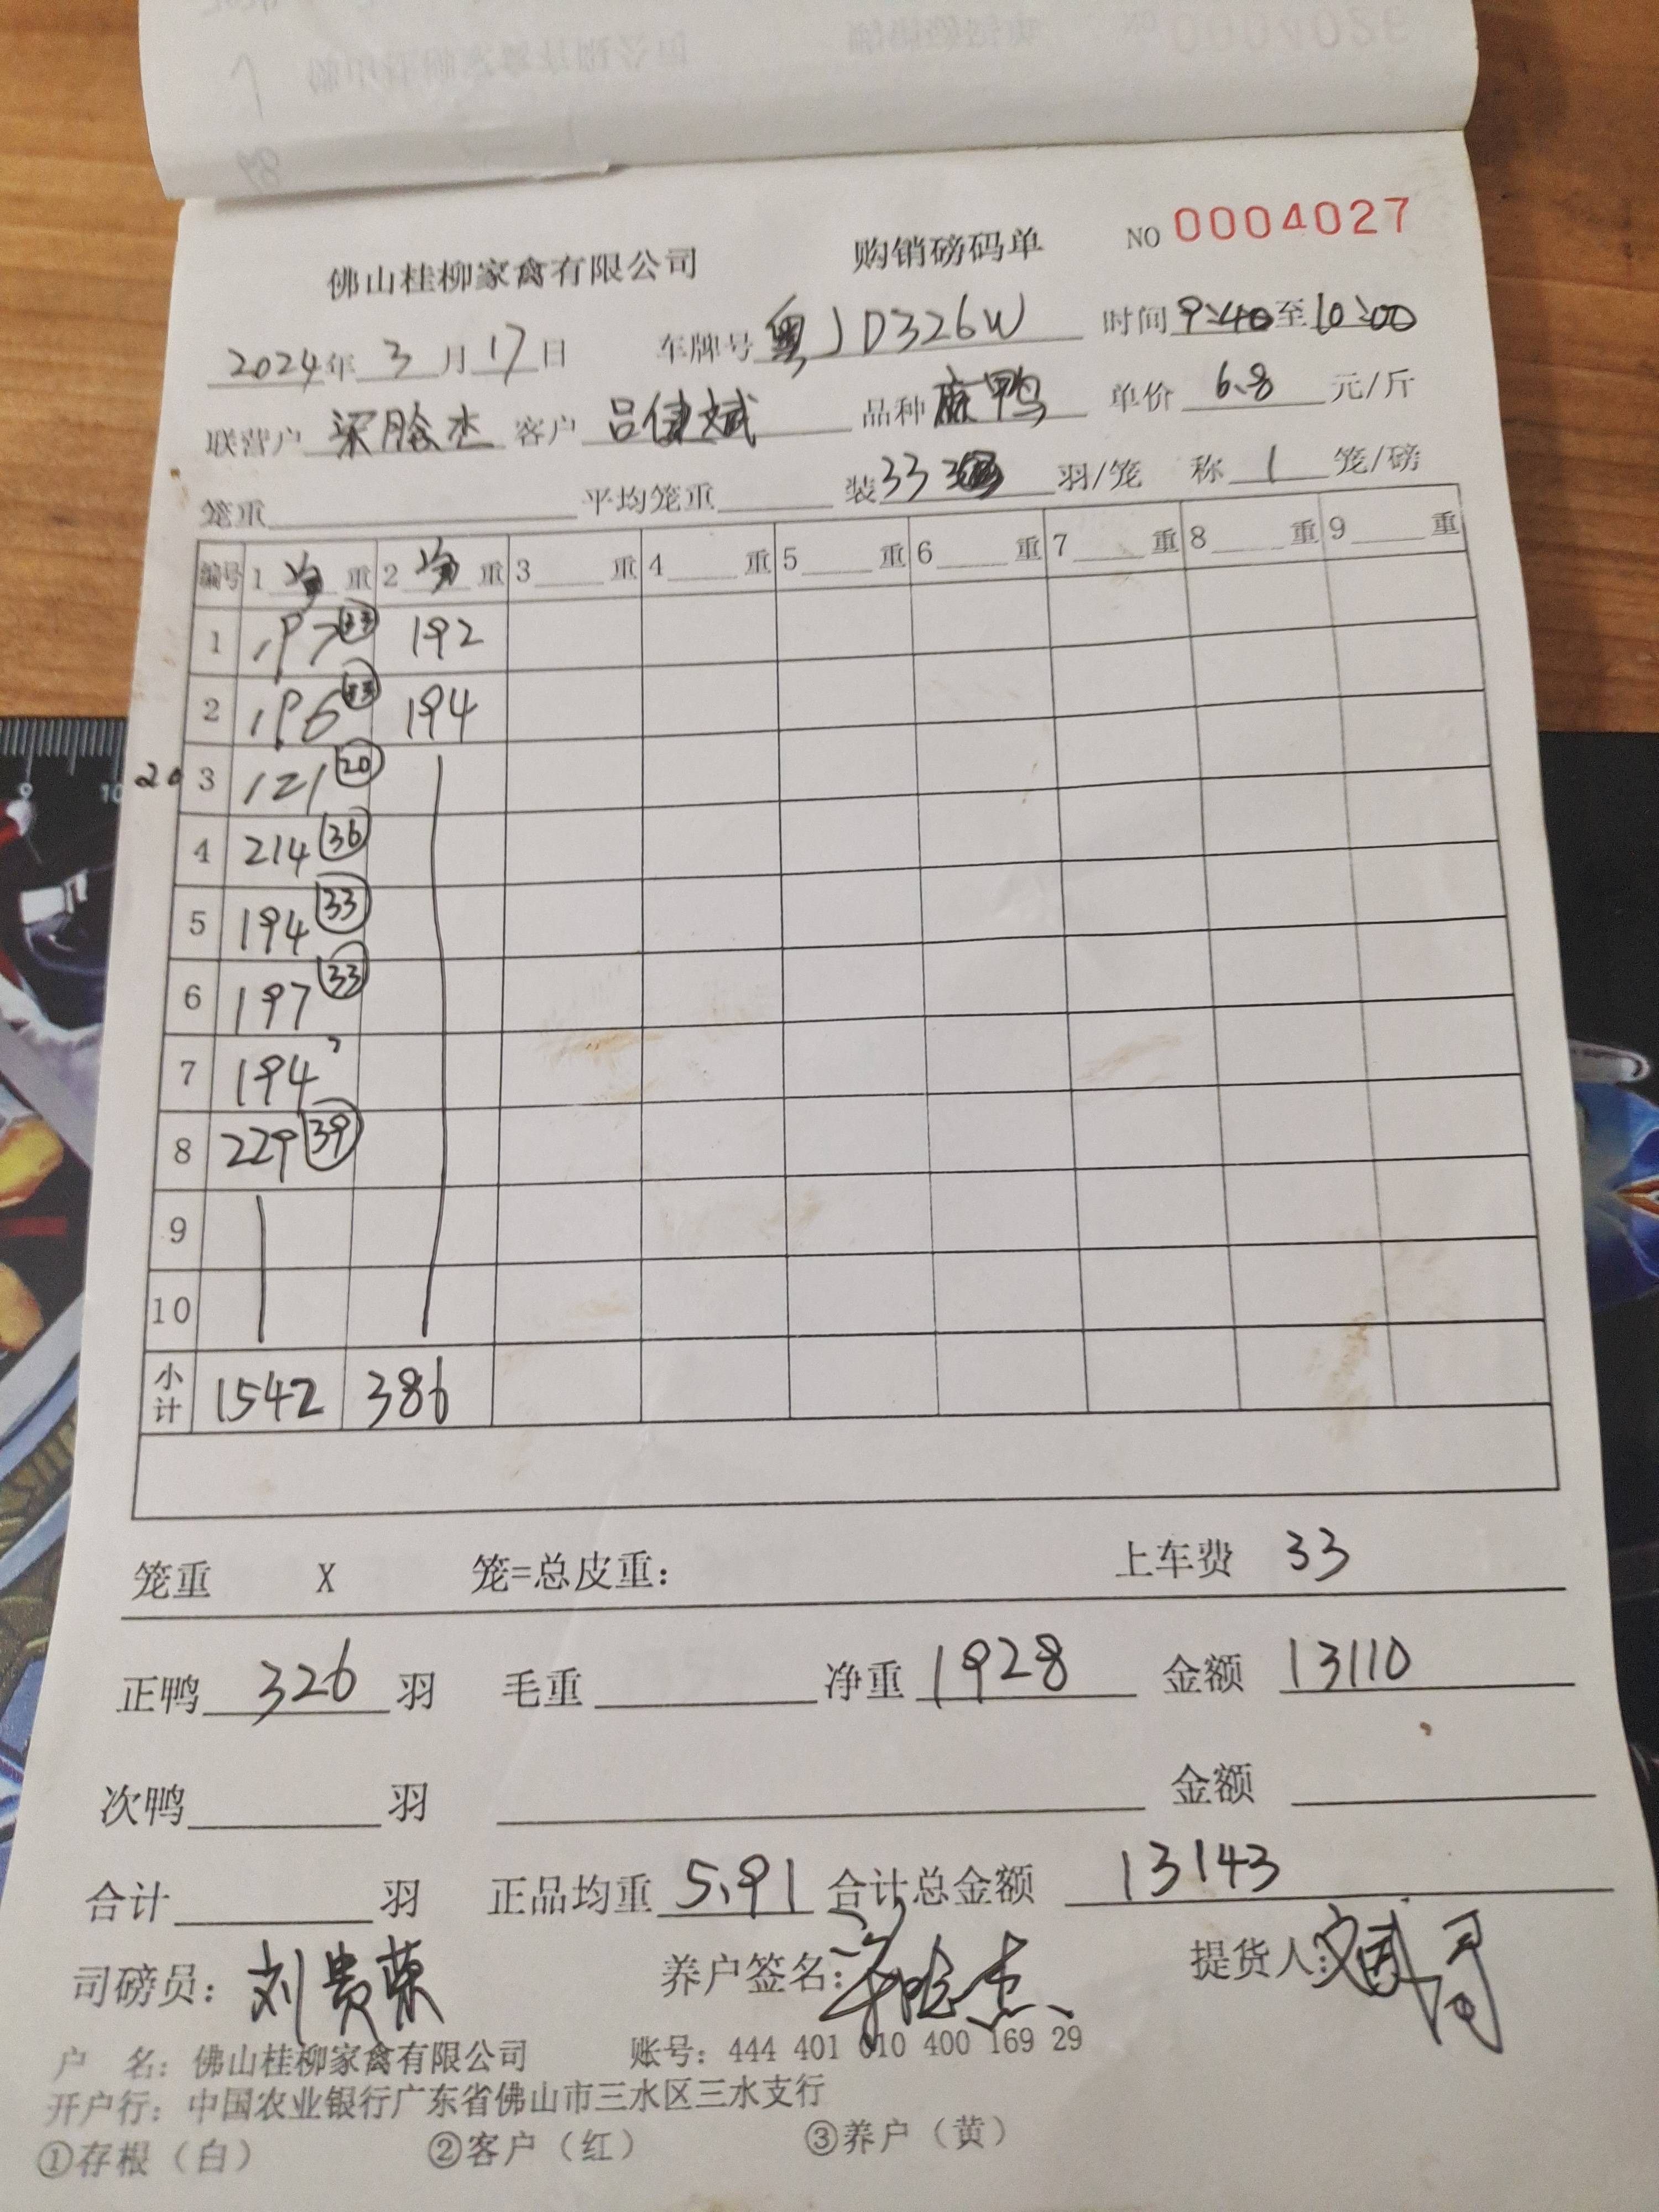 佛山桂柳家禽有限公司 购销磅码单 NO 0004027
2024年 3 月 17 日 车牌号 粤JD326W 时间 9:40 至 10:00
联营户 梁 杰 客户 吕健斌 品种 麻鸭 单价 6.8 元/斤
笼重 平均笼重 装 33 羽/笼 称 1 笼/磅
编号 1 重 2 重 3 重 4 重 5 重 6 重 7 重 8 重 9 重
1 197 33 192
2 196 33 194
20 3 121 20
4 214 36
5 194 33
6 197 33
7 194
8 229 39
9
10
小计 1542 386
笼重 X 笼=总皮重: 上车费 33
正鸭 326 羽 毛重 净重 1928 金额 13110
次鸭 羽 金额
合计 羽 正品均重 5.91 合计总金额 13143
司磅员: 刘贵荣 养户签名: 提货人:
户 名: 佛山桂柳家禽有限公司 账号: 444 401 010 400 169 29
开户行: 中国农业银行广东省佛山市三水区三水支行
①存根（白） ②客户（红） ③养户（黄）